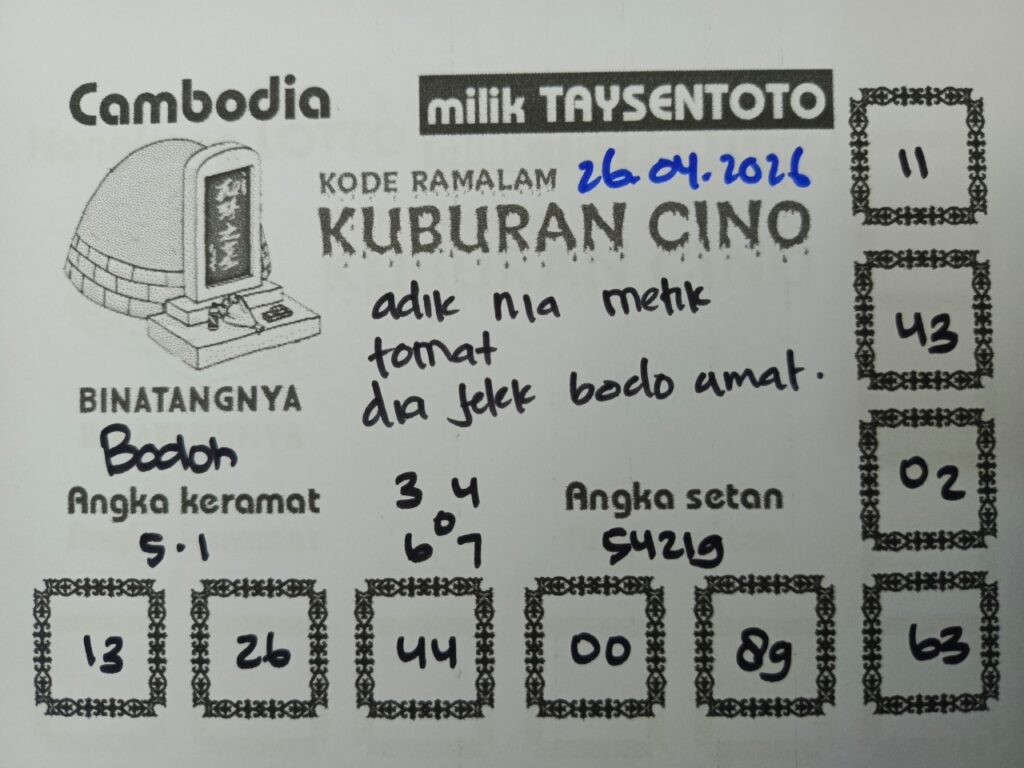 Cambodia
milik TAYSENTOTO
KODE RAMALAM 26.04.2026
KUBURAN CINO
adik nia metik
tomat
dia jelek bodo amat.
BINATANGNYA
Bodoh
Angka keramat
5.1
3 4
0
6 7
Angka setan
54219
11
43
02
13 26 44 00 89 63